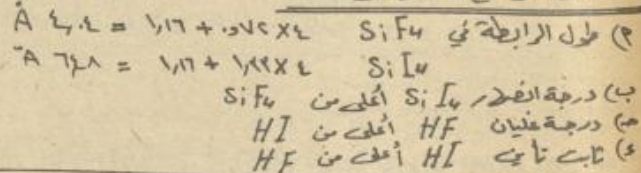 م) طول الرابطة في SiF4 ٤ × ٠,٧٢ + ١,١٦ = ٤,٠٤ Å
SiI4 ٤ × ١,٣٣ + ١,١٦ = ٦٤٨ Å
ب) درجة انصهار SiI4 أعلى من SiF4
حـ) درجة غليان HF أعلى من HI
ء) ثابت تأين HI أعلى من HF